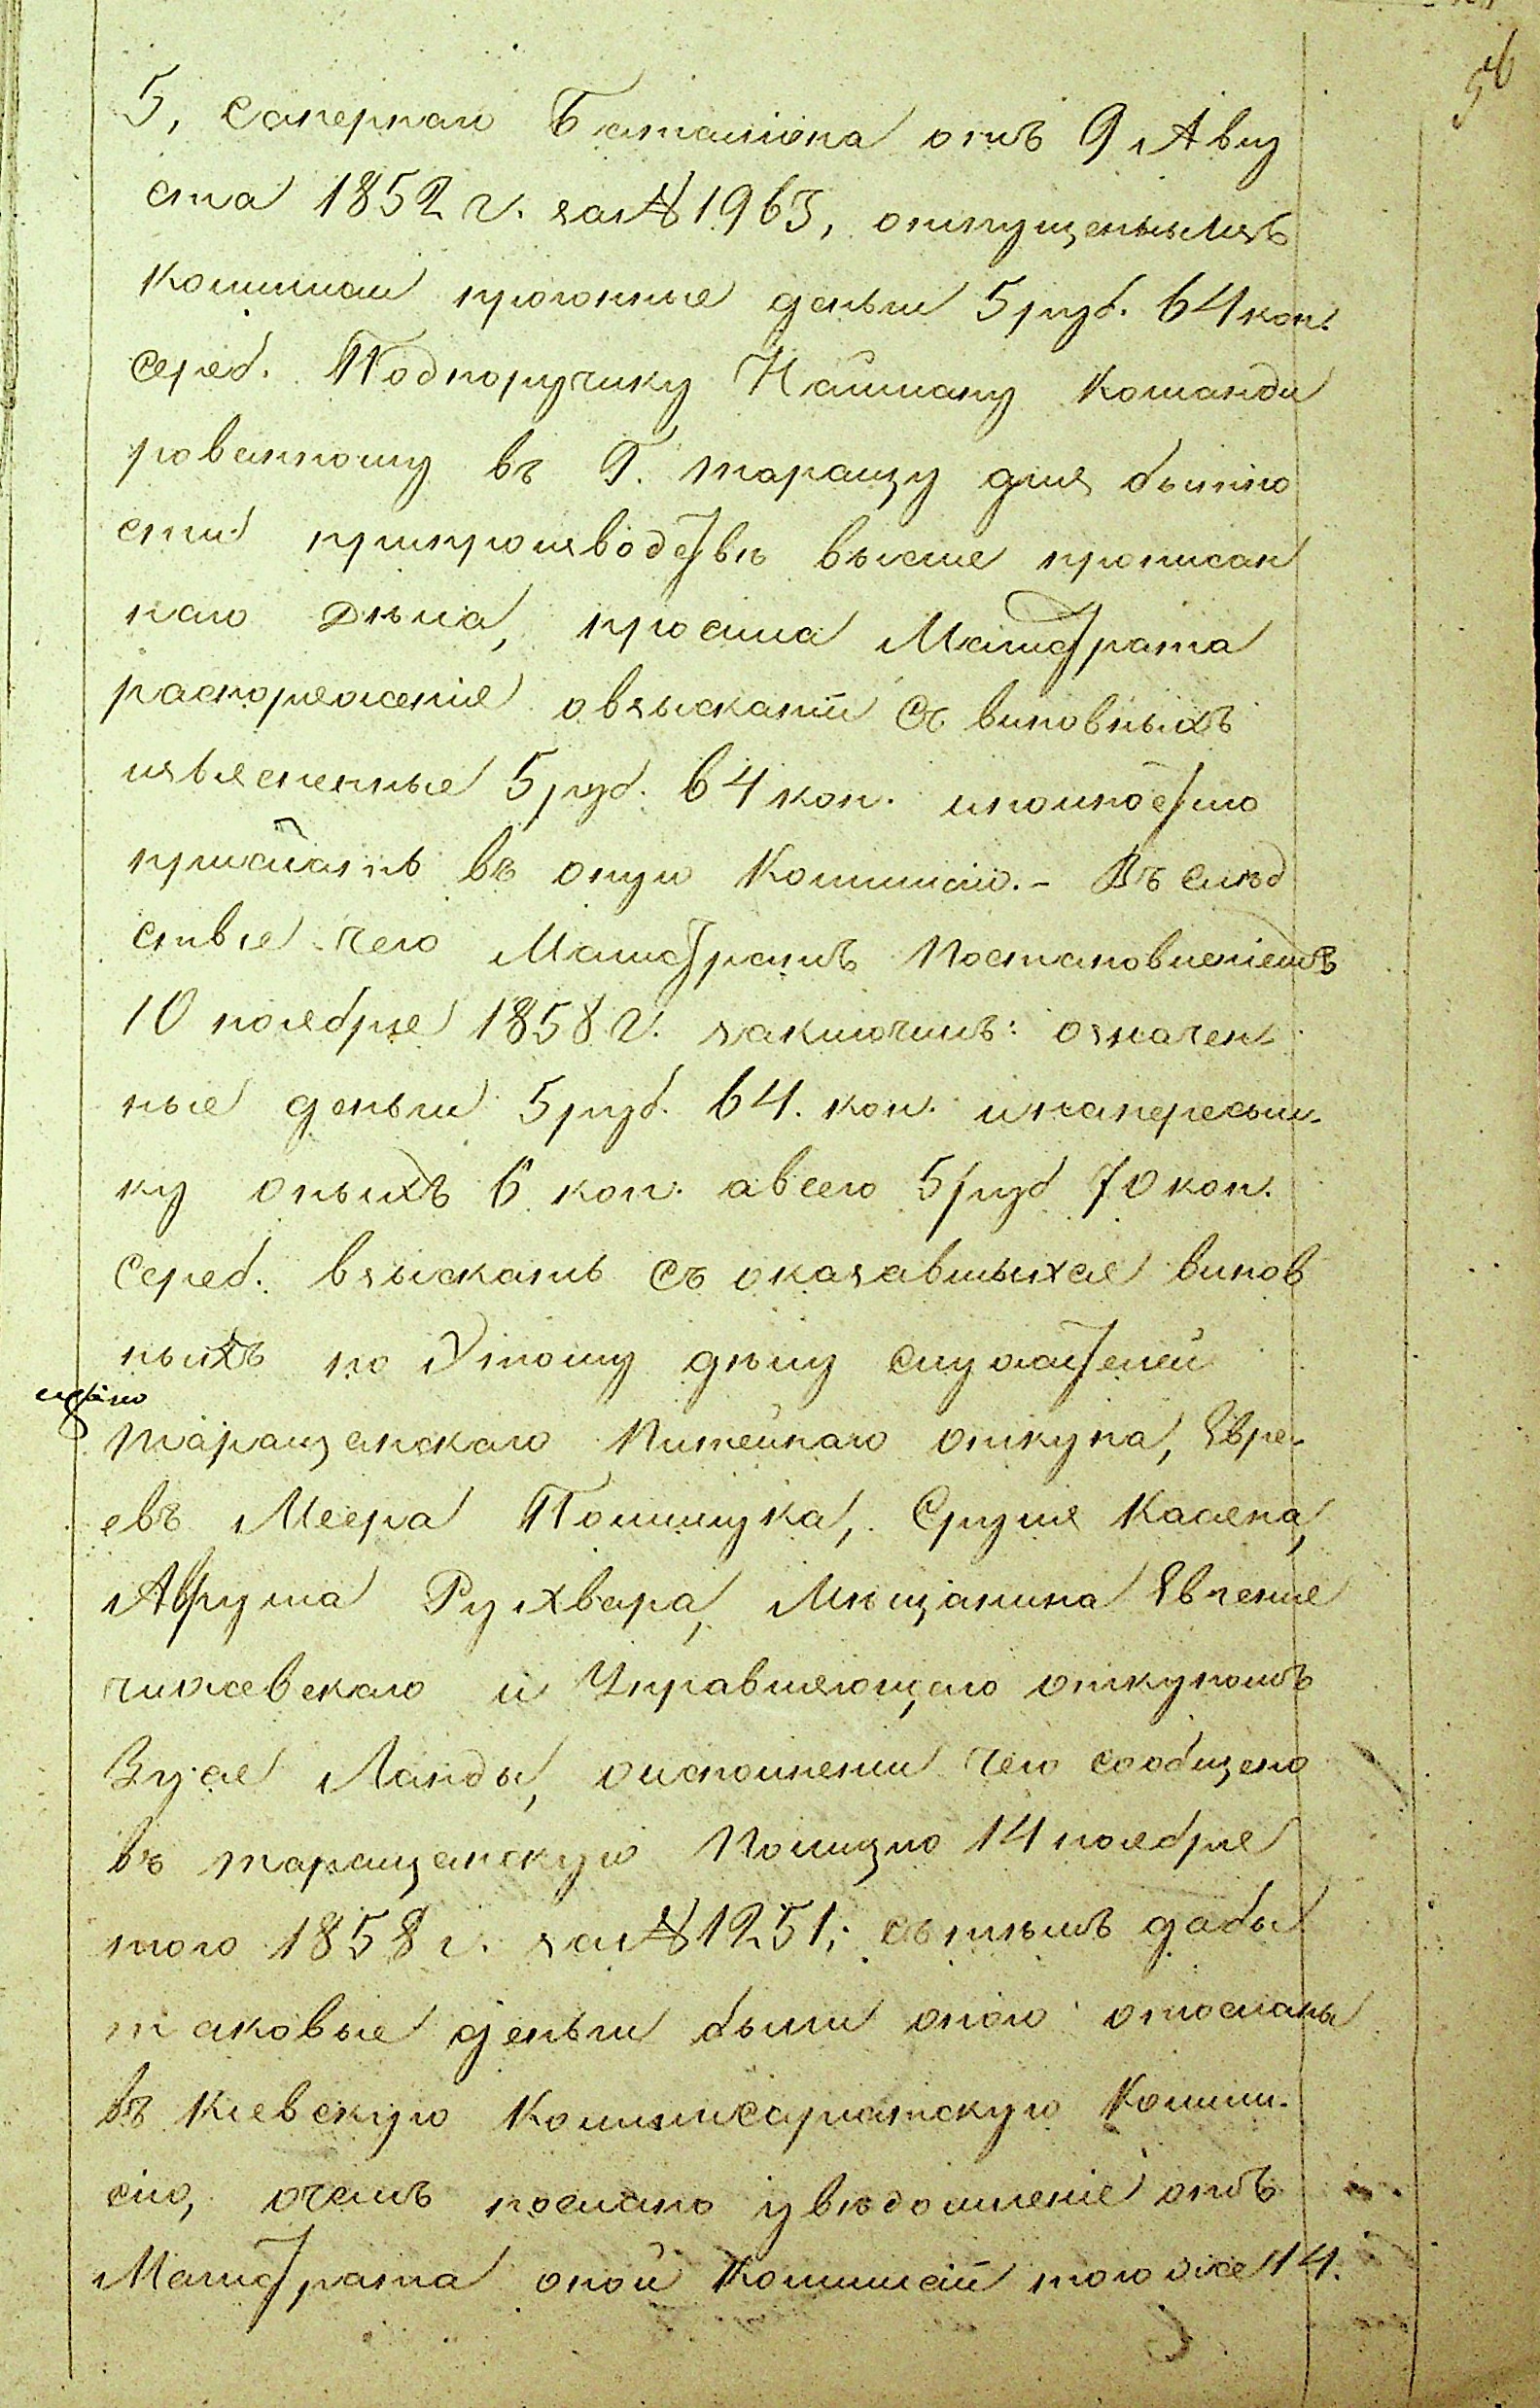 56
5, Сапернаго Баталіона отъ 9 Авгу
ста 1852 г. за № 1963, отпущенныхъ
комисіи прогонные деньги 5 руб. 64 коп.
сереб. Подпоручику Найману командированному
рованному въ Г. Таращу для бытно
сти при производствѣ выше прописан
наго дѣла, просила Магистрата
распоряженія о взысканіи съ виновныхъ
изъясненные 5 руб. 64 коп. и полностію
прислать въ оную Комисію. - Въ слѣд
ствіе чего Магистратъ постановленіемъ
10 ноября 1858 г. заключилъ: означен
ные деньги 5 руб. 64. коп. и на пересыл-
ку оныхъ 6 коп. а всего 5 руб 70 коп.
сереб. взыскать съ оказавшыхся винов
ныхъ по Этому дѣлу служителей
Таращанскаго Питейнаго откупа, Евре-
евъ Меера Полищука, Сруля Касяна,
Аврума Рухвара, Мѣщанина Евгенія
Чижевскаго и Управляющаго откупомъ
Зуся Ланды, о исполненіи чего сообщено
въ Таращанскую Полицію 14 ноября
того 1858 г. за № 1251; съ тѣмъ дабы
таковые деньги были оною отосланы
въ Кіевскую Коммисаріатскую Комми-
сію, о чемъ послано увѣдомленіе отъ
Магистрата оной Коммисіи того же 14.